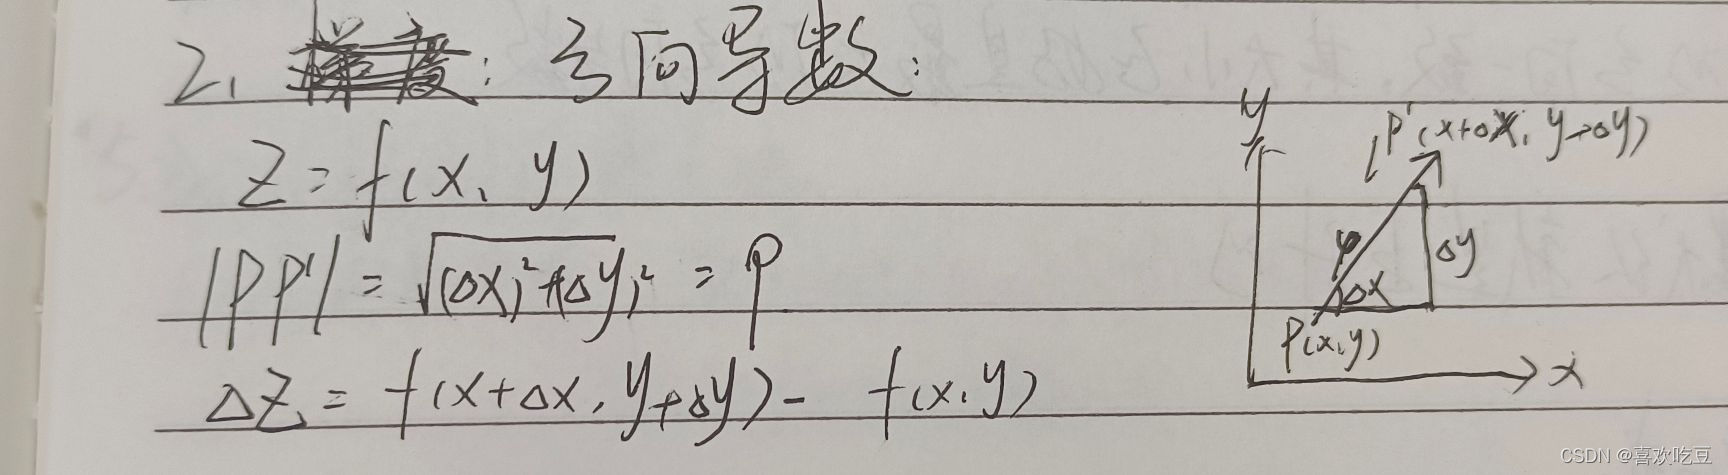 2、：方向导数：
Z = f(x, y)
|PP'| = √(Δx)²+(Δy)² = ρ
ΔZ = f(x+Δx, y+Δy) - f(x, y)
y
P'(x+Δx, y+Δy)
l
φ
Δy
Δx
P(x,y)
x
CSDN @喜欢吃豆